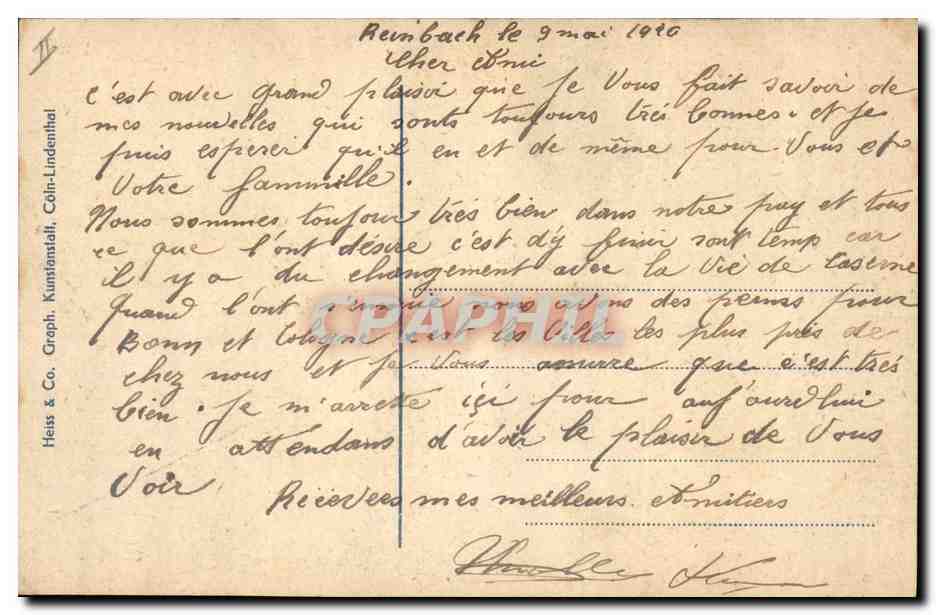 II
Reinbach le 9 mai 1920
Cher Ami
c'est avec grand plaisir que je Vous fait savoir de
mes nouvelles qui sonts toujours très bonnes. et je
puis esperer qu'il en et de même pour Vous et
Votre fammille.
Nous sommes toujour très bien dans notre pay et tous
ce que l'ont désire c'est d'y finir sont temp car
il y a du changement avec la Vie de Caserne
Quand l'ont nous avons des permis pour
Bonn et Cologne c'est les Villes les plus près de
chez nous et je Vous assurre que c'est très
bien. Je m'arrette içi pour aujourd'hui
en attendans d'avoir le plaisir de Vous
Voir
Recevees mes meilleurs Amitiers
Heiss & Co. Graph. Kunstanstalt, Cöln-Lindenthal
CPAPHIL